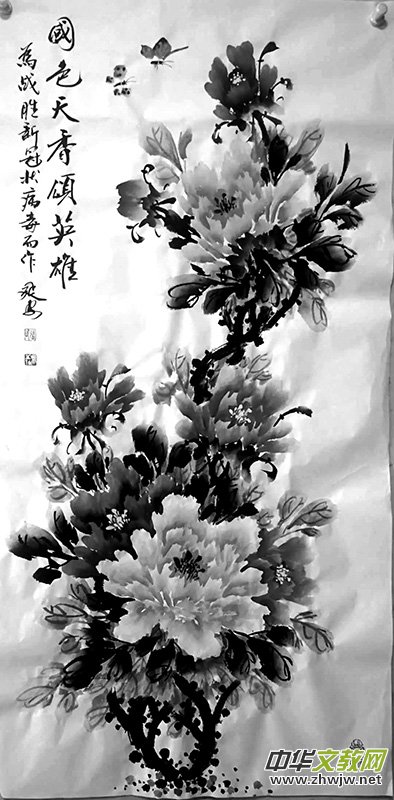 國色天香頌英雄
為战胜新冠状病毒而作
中华文教网
www.zhwjw.net